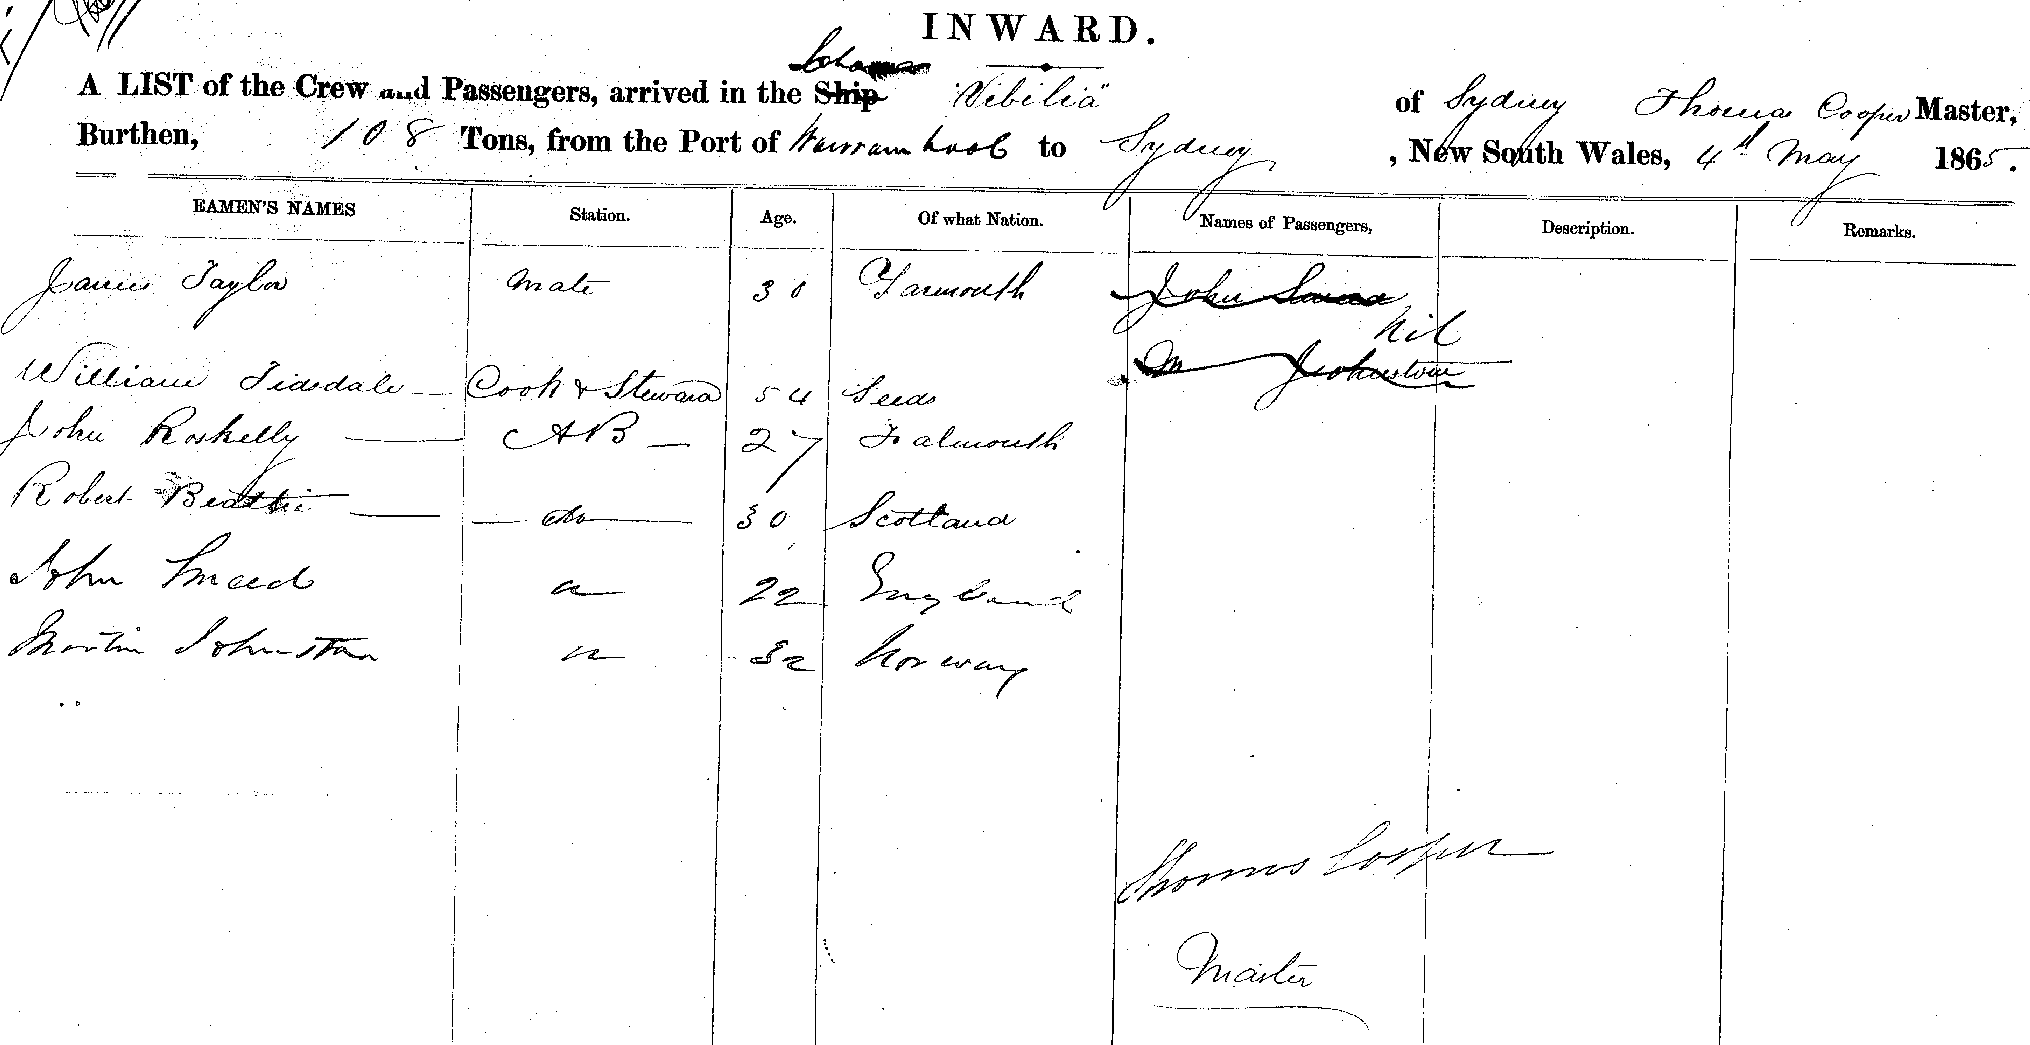 INWARD.
A LIST of the Crew and Passengers, arrived in the Ship "Vibilia" of Sydney Thomas Cooper Master,
Burthen, 108 Tons, from the Port of Warrambool to Sydney, New South Wales, 4th May 1865.
EAMEN'S NAMES Station. Age. Of what Nation. Names of Passengers, Description. Remarks.
James Taylor Mate 30 Yarmouth John
Nil
William Tidsdale Cook & Steward 54 Leeds M Johnston
John Roskelly AB 27 Falmouth
Robert Beattie do 30 Scotland
John Smeed " 22 England
Martin Johnston " 32 Norway
Thomas Cooper
Master